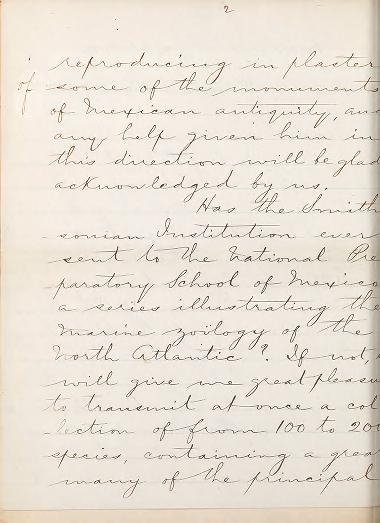 2
reproducing in plaster
of some of the monuments
of Mexican antiquity, and
any help given him in
this direction will be glad
acknowledged by us.
Has the Smith
sonian Institution ever
sent to the National Pre
paratory School of Mexico
a series illustrating the
marine zoölogy of the
North Atlantic? If not,
will give me great pleasu
to transmit at once a col
lection of from 100 to 200
species, containing a grea
many of the principal